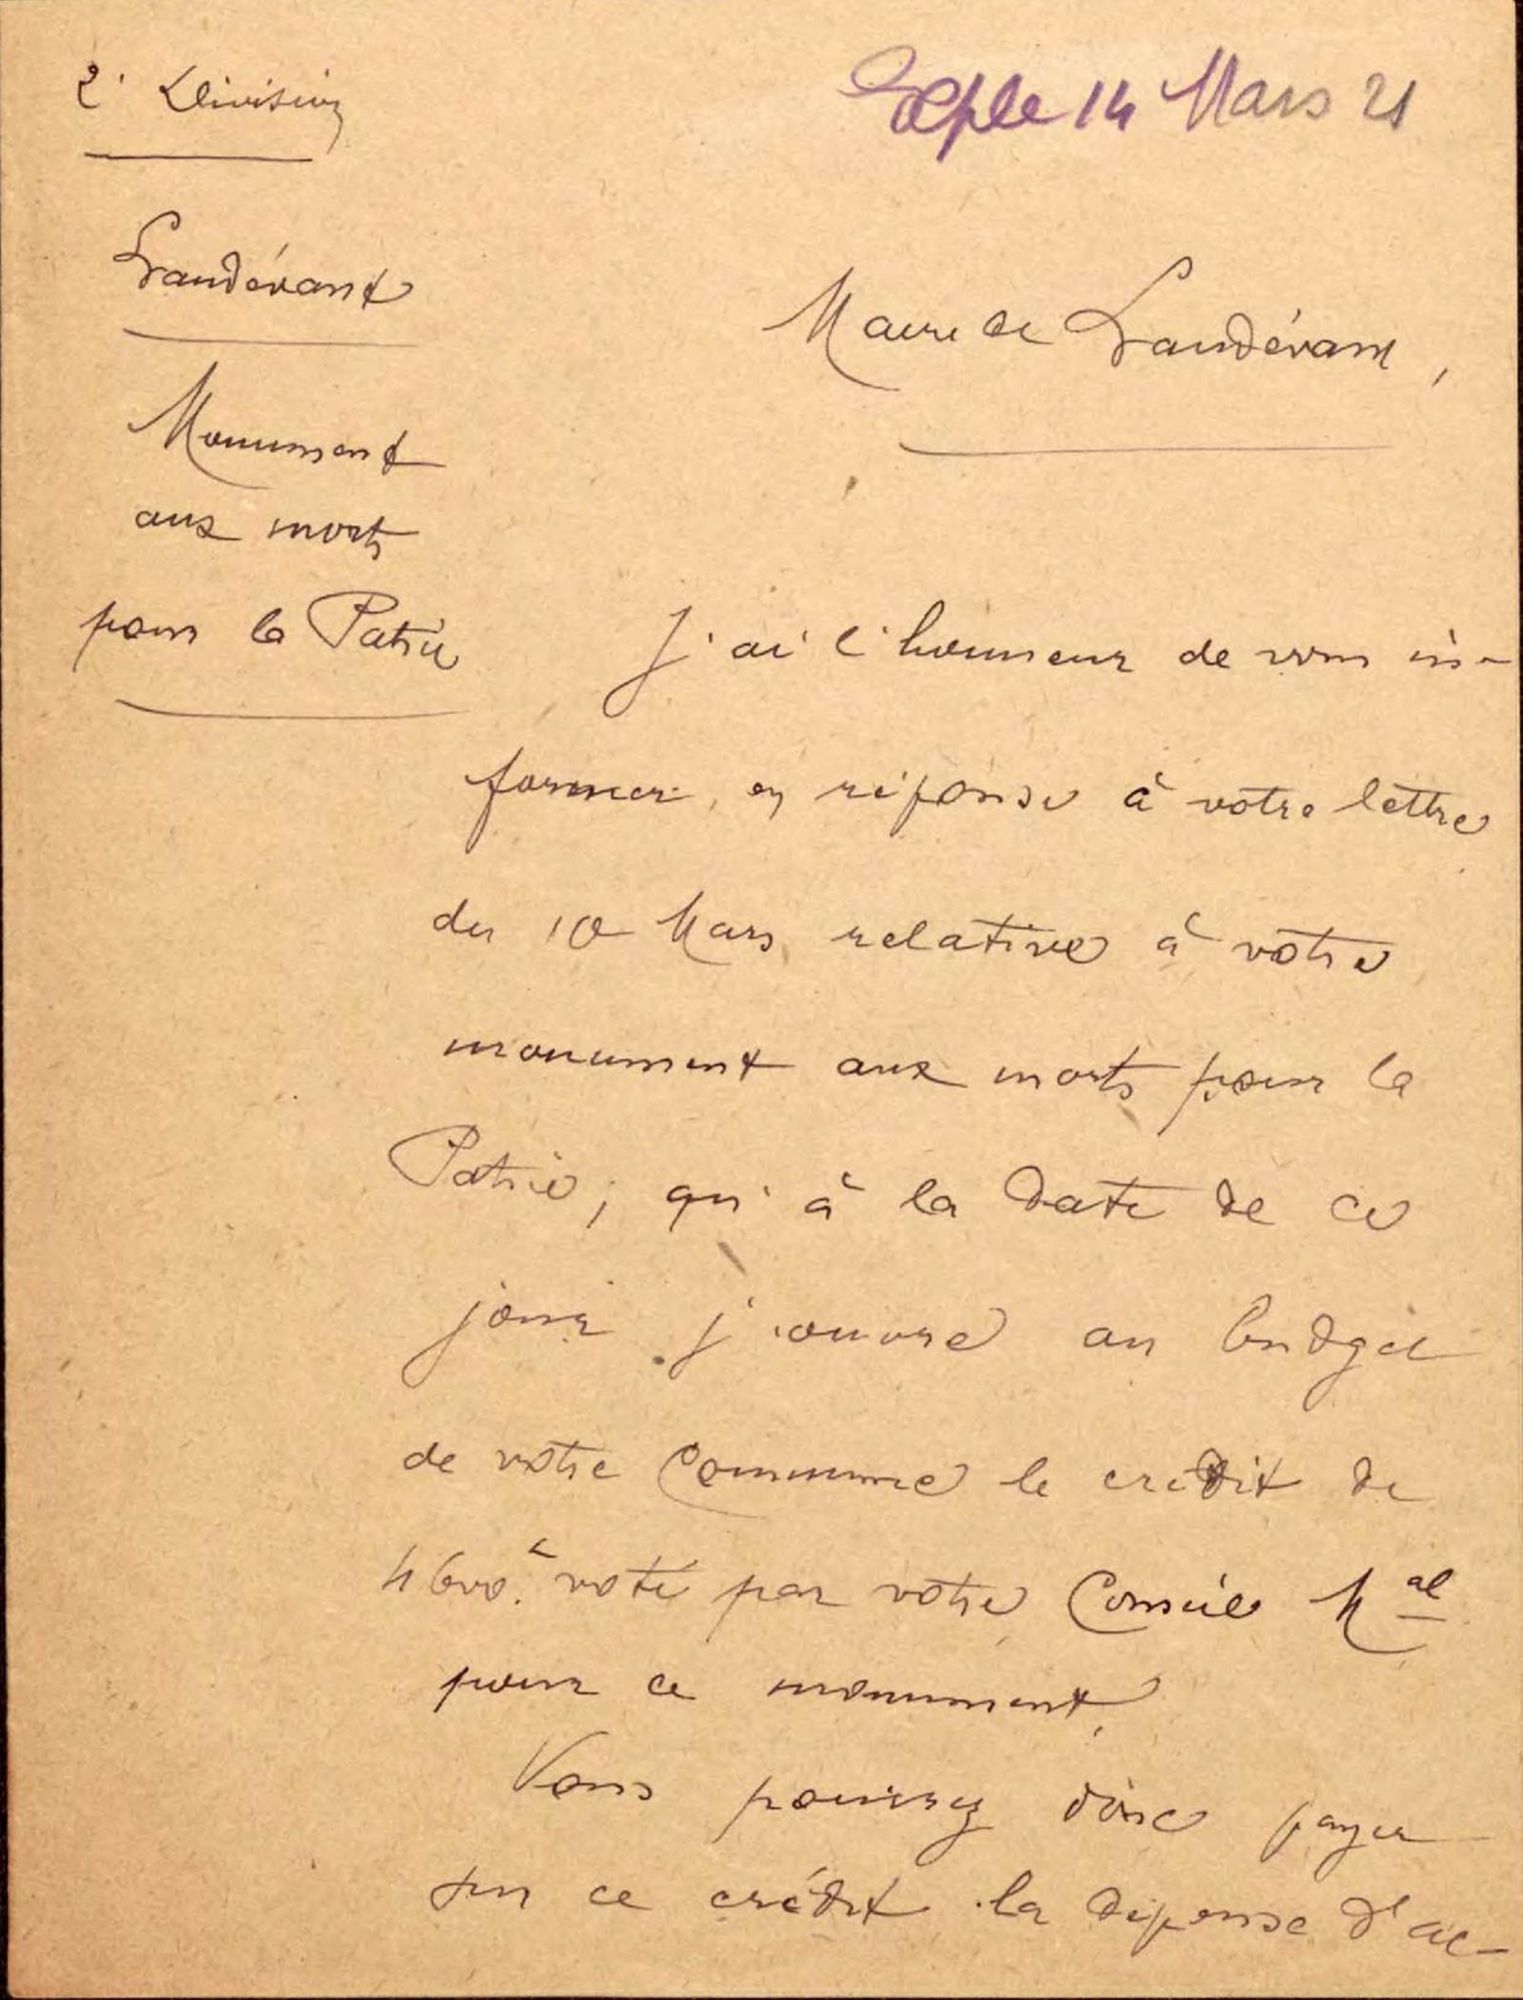 2e Division
Exple 14 Mars 21
Landévant
Maire de Landévant,
Monument
aux morts
pour la Patrie
J'ai l'honneur de vous in-
former, en réponse à votre lettre
du 10 Mars relative à votre
monument aux morts pour la
Patrie, qu'à la date de ce
jour j'ouvre au budget
de votre Commune le crédit de
4600f voté par votre Conseil Mal
pour ce monument.
Vous pourrez donc payer
sur ce crédit la dépense d'ac-